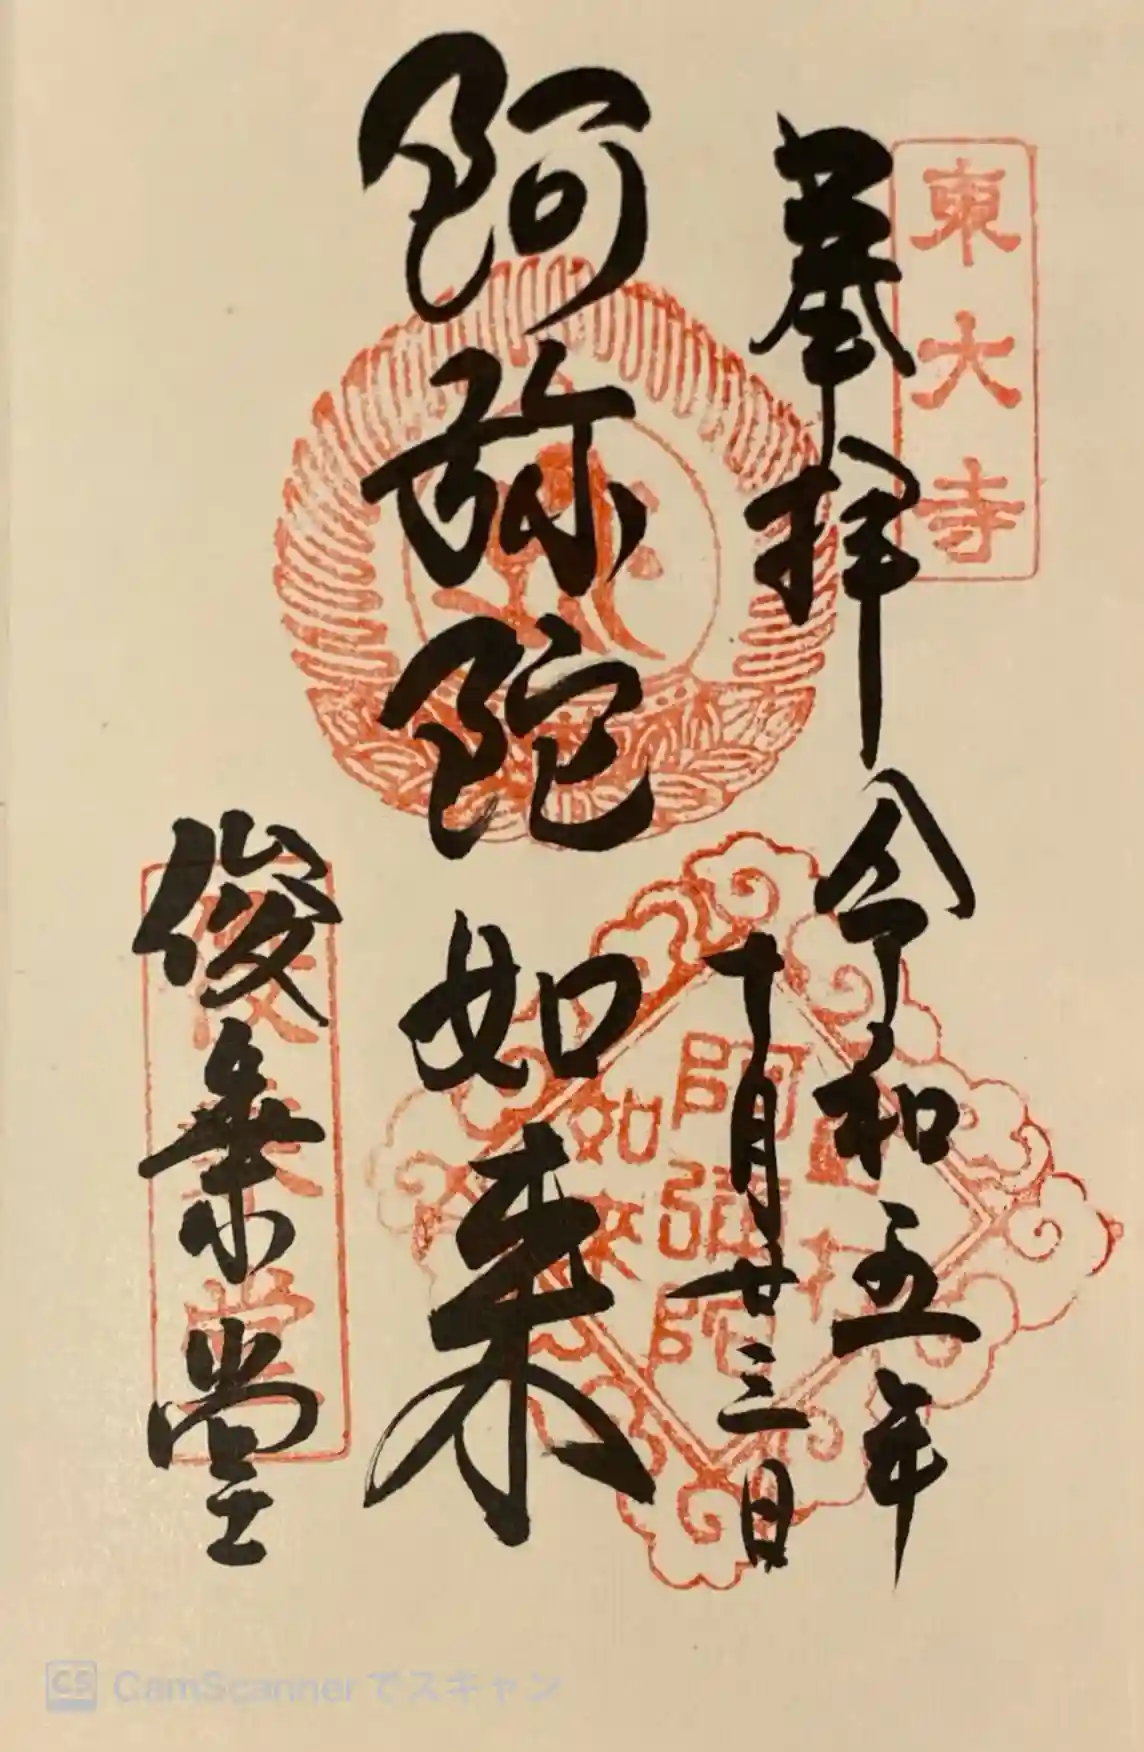 東大寺
奉拝
令和五年
十月廿三日
阿弥陀如来
阿弥陀
如来
俊乗堂
俊乗堂
CS CamScannerでスキャン